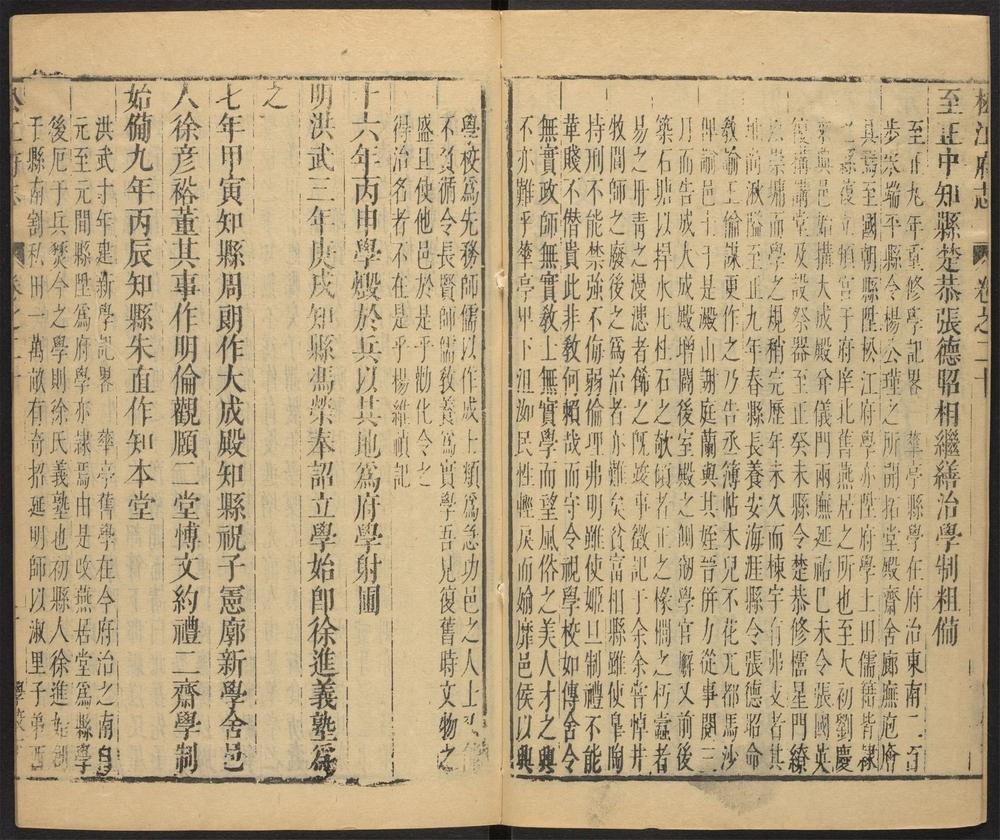 松江府志 卷之二十
至正中知縣楚恭張德昭相繼繕治學制粗備
至正九年重修學記畧 華亭縣學在府治東南二百
步宋端平縣令楊公瑾之所開拓堂殿齋舍廊廡庖廥
具焉至國朝縣陞松江府學亦陞府學土田儒籍皆隸
之縣復立鎮宫于府庠北舊燕居之所也至大初劉慶
來與邑始搆大成殿爷儀門兩廡延祐己未令張國英
復搆講堂及設祭器至正癸未縣令楚恭修櫺星門繚
以崇墉而學之規稍完歷年未久而棟宇有弗支者其
地尚湫隘至正九年春縣長養安海涯縣令張德昭命
教諭王倫謀更作之乃告丞簿帖木兒不花兀都馬沙
俾諭邑士于是澱山謝庭蘭與其姪晉併力從事閱三
月而告成大成殿增闢後室殿之側剏學官廨又前後
築石塘以捍水凡杜石之欹傾者正之榱桷之朽蠹者
易之丹靑之漫漶者餙之既竣事徵記于余余嘗悼井
牧閭師之廢後之爲治者亦難矣貧富相縣雖使皐陶
持刑不能禁強不侮弱倫理弗明雖使姬旦制禮不能
革賤不僭貴此非教何賴哉而守令視學校如傳舍令
無實政師無實教士無實學而望風俗之美人才之興
不亦難乎華亭卑下沮洳民性輕戾而媮靡邑侯以興
學校爲先務師儒以作成士類爲急功邑之人士
不負循令長賢師儒教養爲實學吾見復舊時文物之
盛且使他邑於是乎觀化令之
得治名者不在是乎楊維禎記
十六年丙申學燬於兵以其地爲府學射圃
明洪武三年庚戌知縣馮榮奉詔立學始卽徐進義塾爲
之
七年甲寅知縣周朗作大成殿知縣祝子憲廓新學舍邑
人徐彥裕董其事作明倫觀頤二堂博文約禮二齋學制
始備九年丙辰知縣朱直作知本堂
洪武十年建新學記畧 華亭舊學在今府治之南
元至元間縣陞爲府學亦隷焉由是收燕居堂爲縣學
後厄于兵燹今之學則徐氏義塾也初縣人徐進
于縣南割私田一萬畝有奇招延明師以淑里子弟